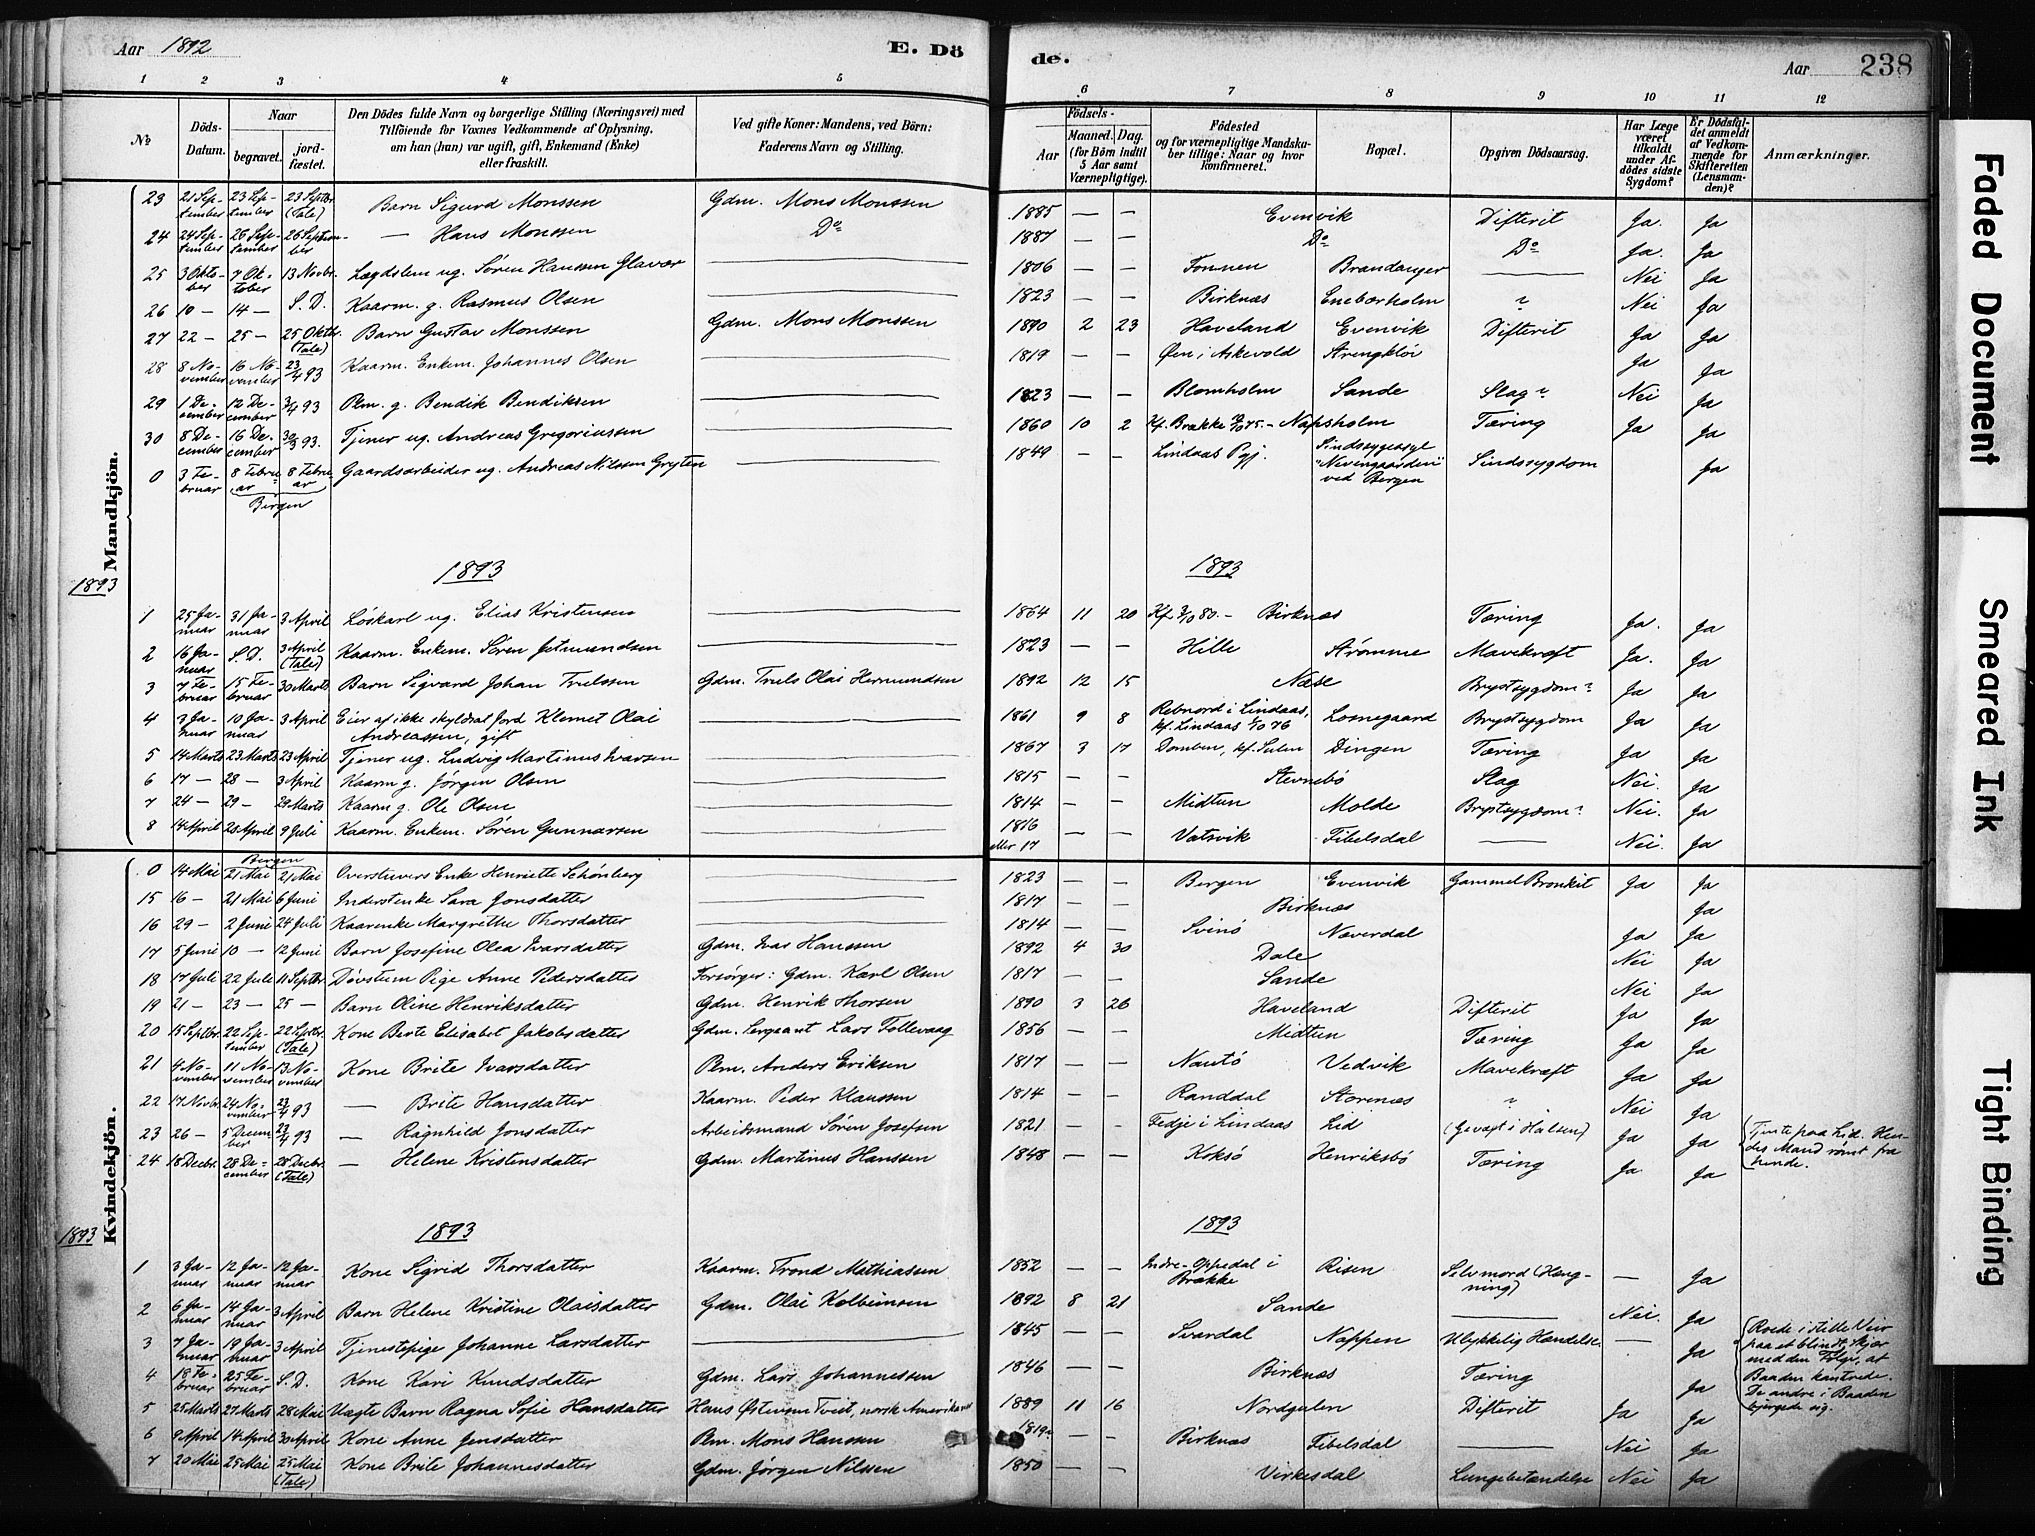 Aar 1892 E. Dö
de. Aar 238
1 2 3 4 5 6 7 8 9 10 11 12
No Döds-Datum. Naar begravet. jord-fæstet. Den Dödes fulde Navn og borgerlige Stilling (Næringsvei) med Tilföiende for Voxnes Vedkommende af Oplysning, om han (hun) var ugift, gift, Enkemand (Enke) eller fraskilt. Ved gifte Koner: Mandens, ved Börn: Faderens Navn og Stilling. Födsels- Aar Maaned. Dag. (for Börn indtil 5 Aar samt Værnepligtige). Födested og for værnepligtige Mandskaber tillige: Naar og hvor konfirmeret. Bopæl. Opgiven Dödsaarsag. Har Læge været tilkaldt under Afdödes sidste Sygdom? Er Dödsfaldet anmeldt af Vedkommende for Skifteretten (Lensmanden)? Anmærkninger.
Mandkjön.
23 21 September 23 September 23 Septbr. (Tale) Barn Sigurd Monssen Gdm. Mons Monssen 1885 — — Evenvik Difterit Ja. Ja
24 24 September 26 September 26 September — Hans Monssen Do 1887 — — Do Do Ja. Ja
25 3 Oktober 7 Oktober 13 Novbr. Lægdslem ug. Søren Hanssen Glavær — 1806 — — Tonnen Brandanger — Nei Ja
26 10 — 14 — S. D. Kaarm. g. Rasmus Olsen — 1823 — — Birknæs Eneb​ærholm ? Nei Ja
27 22 — 25 — 25 Oktbr. (Tale) Barn Gustav Monssen Gdm. Mons Monssen 1890 2 23 Haveland Evenvik Difterit Ja Ja
28 8 November 16 November 23/4 93 Kaarm. Enkem. Johannes Olsen — 1819 — — Øen i Askevold Ja Ja
29 1 December 12 December 3/4 93 Plm. g. Bendik Bendiksen — 1823 — — Blomholm Sande Slag ? Nei Ja
30 8 December 16 December 93. Tjener ug. Andreas Gregoriussen — 1860 10 2 Kf. Brække 75. — Napsholm Tæring Ja Ja
0 3 Februar 8 Februar 8 Februar Bergen Gaardsarbeider ug. Andreas Nilssen Gryten — 1849 — — Lindaas Pgj. Sindssygeasyl "Nevengaarden" ved Bergen Sindssygdom Ja
1893 1893 1893
1 25 Januar 31 Januar 3 April Løskarl ug. Elias Kristensen — 1864 11 20 Kf. 80. — Birknæs Tæring Ja. Ja
2 16 Januar S. D. 3 April (Tale) Kaarm. Enkem. Søren Jetmundsen — 1823 — — Hille Strømme Mavekræft Ja. Ja
3 7 Februar 15 Februar 30 Marts Barn Sigvard Johan Trulssen Gdm. Truls Olai Hermundsen 1892 12 15 Næse Brystsygdom ? Ja Ja
4 3 Januar 10 Januar 3 April Eier af ikke skyldsat Jord Klemet Olai Andreassen, gift — 1861 9 8 Rebnord i Lindaas, kf. Lindaas 76 Losnegaard Brystsygdom Ja Ja
5 14 Marts 23 Marts 23 April Tjener ug. Ludvig Martinus Ivarsen — 1867 3 17 Domben, kf. Sulen Dingen Tæring Ja Ja
6 17 — 28 — 3 April Kaarm g. Jørgen Olsen — 1815 — — Stevnebø Slag Nei. Ja
7 24 — 29 — 29 Marts Kaarm g. Ole Olsen — 1814 — — Midtun Molde Brystsygdom ? Nei. Ja
8 14 April 28 April 9 Juli Kaarm. Enkem. Søren Gunnarsen — 1816 eller 17 — — Vatsvik Fibelsdal — Nei. Ja
Kvindekjön.
0 14 Mai Bergen 21 Mai 21 Mai Enke Henriette Schønberg — 1823 — — Bergen Evenvik Gammel Bronkit Ja Ja
15 16 — 21 Mai 6 Juni Inderstenke Sara Jonsdatter — 1817 — — Birknæs Ja
16 29 — 2 Juni 24 Juli Kaarenke Margrethe Thorsdatter 1814 — — Svinø Næverdal Ja Ja
17 5 Juni 10 — 12 Juni Barn Josefine Olea Ivarsdatter Gdm. Ivar Hanssen 1892 4 30 Dale Nei Ja
18 17 Juli 22 Juli 11 Septbr. Døvstum Pige Anne Pedersdatter Forsørger: Gdm. Karl Olsen 1817 — — Sande Nei Ja
19 21 — 23 — 25 — Barn Oline Henriksdatter Gdm. Henrik Thorsen 1890 3 26 Haveland Difterit Ja Ja
20 15 Septbr. 22 September 22 Septbr. (Tale) Kone Berte Elisabet Jakobsdatter Gdm. Sergeant Lars Tollevaag 1856 — — Midtun Tæring Ja Ja
21 4 November 11 November 13 November Kone Brite Ivarsdatter Plm. Anders Eriksen 1817 — — Nautø Vedvik Mavekræft Ja Ja
22 17 Novbr. 24 November 23/4 93 — Brite Hansdatter Kaarm. Peder Klaussen 1814 — — Randdal Storenæs ? Nei Ja
23 26 — 5 December 23/4 93 — Ragnhild Jonsdatter Arbeidsmand Søren Josefsen 1821 — — Fedje i Lindaas Lid (Gevæxt i Halsen) Ja Ja Tjente paa Lid. Hendes Mand rømt fra hende.
24 18 Decbr. 28 December 28 Decbr. (Tale) — Helene Kristensdatter Gdm. Martinus Hanssen 1848 — — Koksø Henriksbø Tæring Ja. Ja
1893 1893 1893
1 3 Januar 12 Januar 12 Januar Kone Sigrid Thorsdatter Kaarm. Trond Mathiassen 1852 — — Indre-Oppedal i Brække Risen Selvmord (Hængning) — Ja
2 6 Januar 14 Januar 3 April Barn Helene Kristine Olaisdatter Gdm. Olai Kolbeinsen 1892 8 21 Sande — Nei. Ja
3 7 Januar 19 Januar 3 April Tjenestepige Johanne Larsdatter — 1845 — — Svardal Nappen Ulykkelig Hændelse. — Ja Roede i stille Veir paa et blindt Skjær med den Følge, at Baaden kantrede. De andre i Baaden bjergede sig.
4 18 Februar 25 Februar S. D. Kone Kari Knudsdatter Gdm. Lars Johannessen 1846 — — Birknæs Tæring Ja
5 25 Marts 27 Marts 28 Mai Uægte Barn Ragna Sofie Hansdatter Hans Østensen Tveit, norsk Amerikaner 1889 11 16 Nordgulen Difterit Ja Ja
6 9 April 14 April 30 April Kone Anne Jensdatter Plm. Mons Hanssen 1819 — — Birknæs Fibelsdal — Nei Ja
7 20 Mai 25 Mai 25 Mai (Tale) Kone Brite Johannesdatter Gdm. Jørgen Nilssen 1850 — — Virkesdal Lungebetændelse Nei Ja
Faded Document
Smeared Ink
Tight Binding